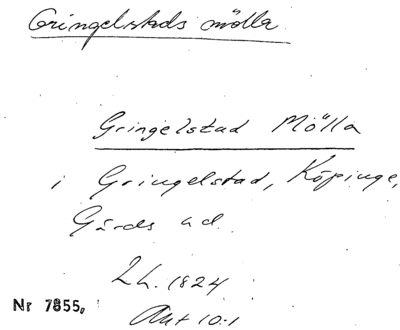 Gringelstads mölla
Gringelstad Mölla
i Gringelstad, Köpinge,
Gärds hd.
Lh. 1824
Nr 7855,
Akt 10:1